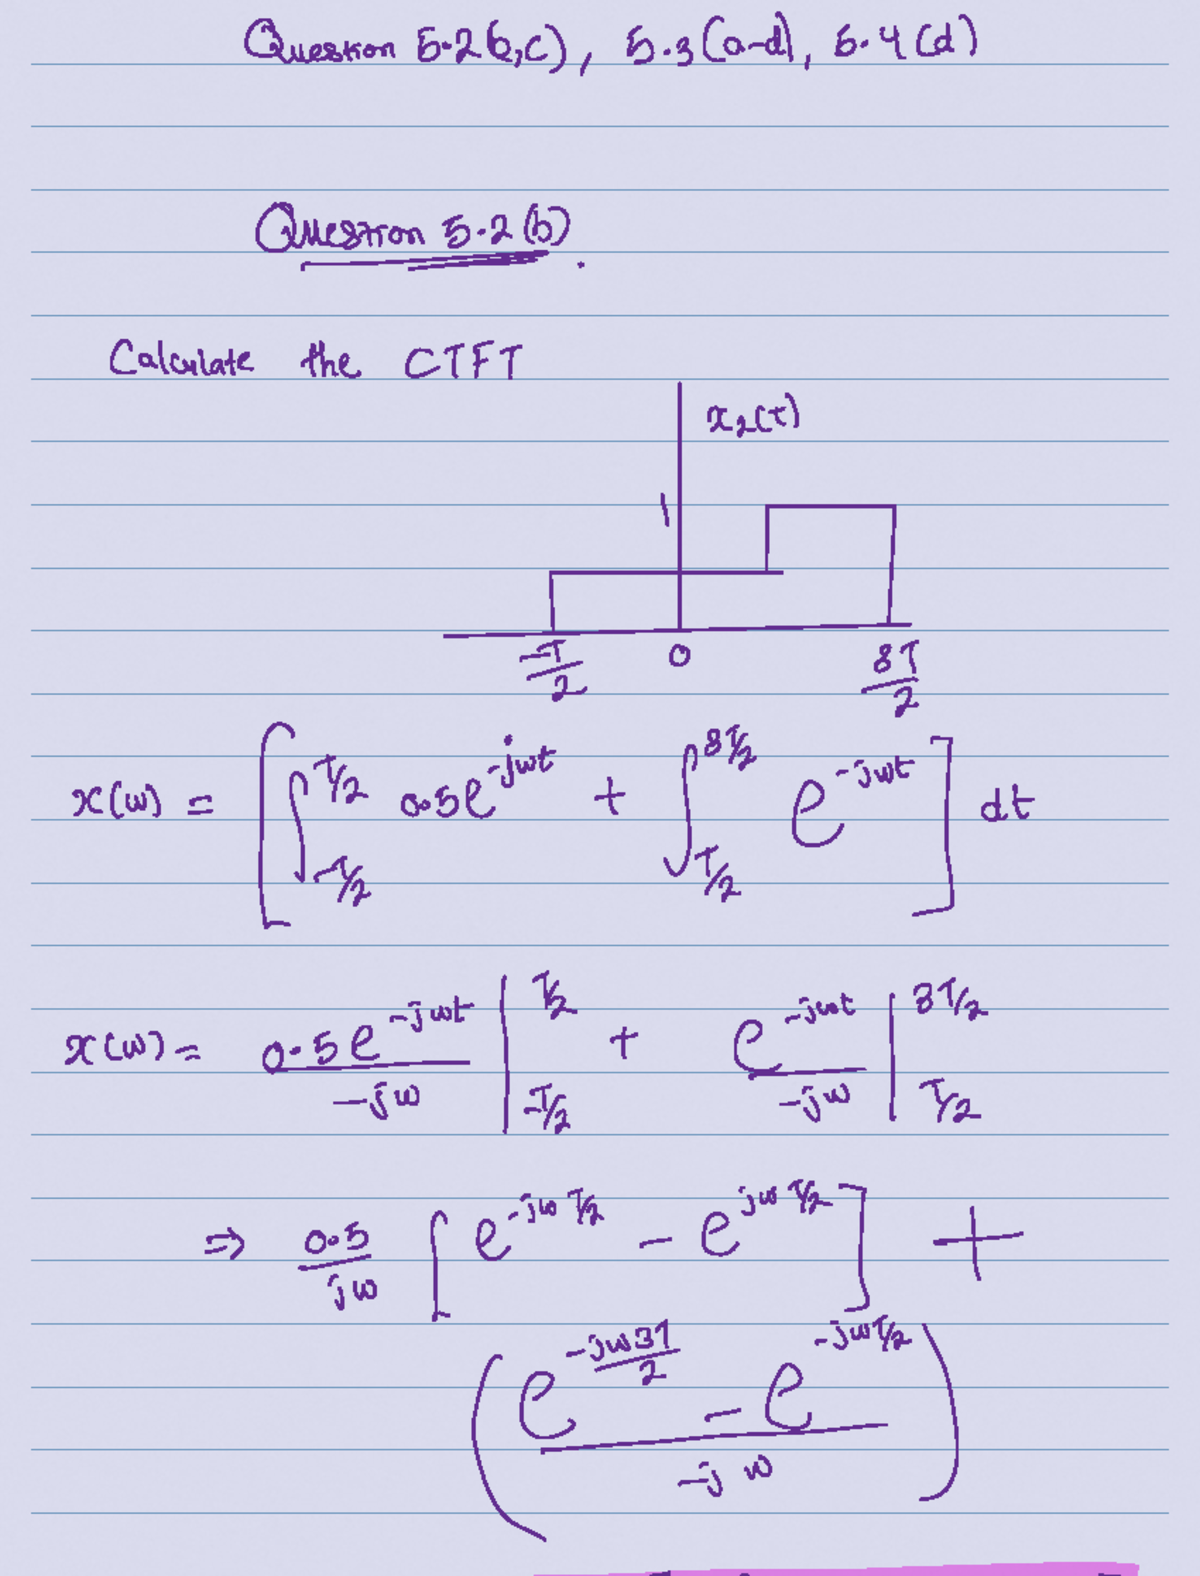 Question 5.2(b,c), 5.3(a-d), 5.4(d)
Question 5.2(b).
Calculate the CTFT
x₂(t)
1
-T/2 0 3T/2
x(w) = [∫_{-T/2}^{T/2} 0.5e^{-jwt} + ∫_{T/2}^{3T/2} e^{-jwt}] dt
x(w) = 0.5e^{-jwt}/-jw |_{-T/2}^{T/2} + e^{-jwt}/-jw |_{T/2}^{3T/2}
⇒ 0.5/jw [e^{-jwT/2} - e^{jwT/2}] +
(e^{-jw3T/2} - e^{-jwT/2} / -jw)